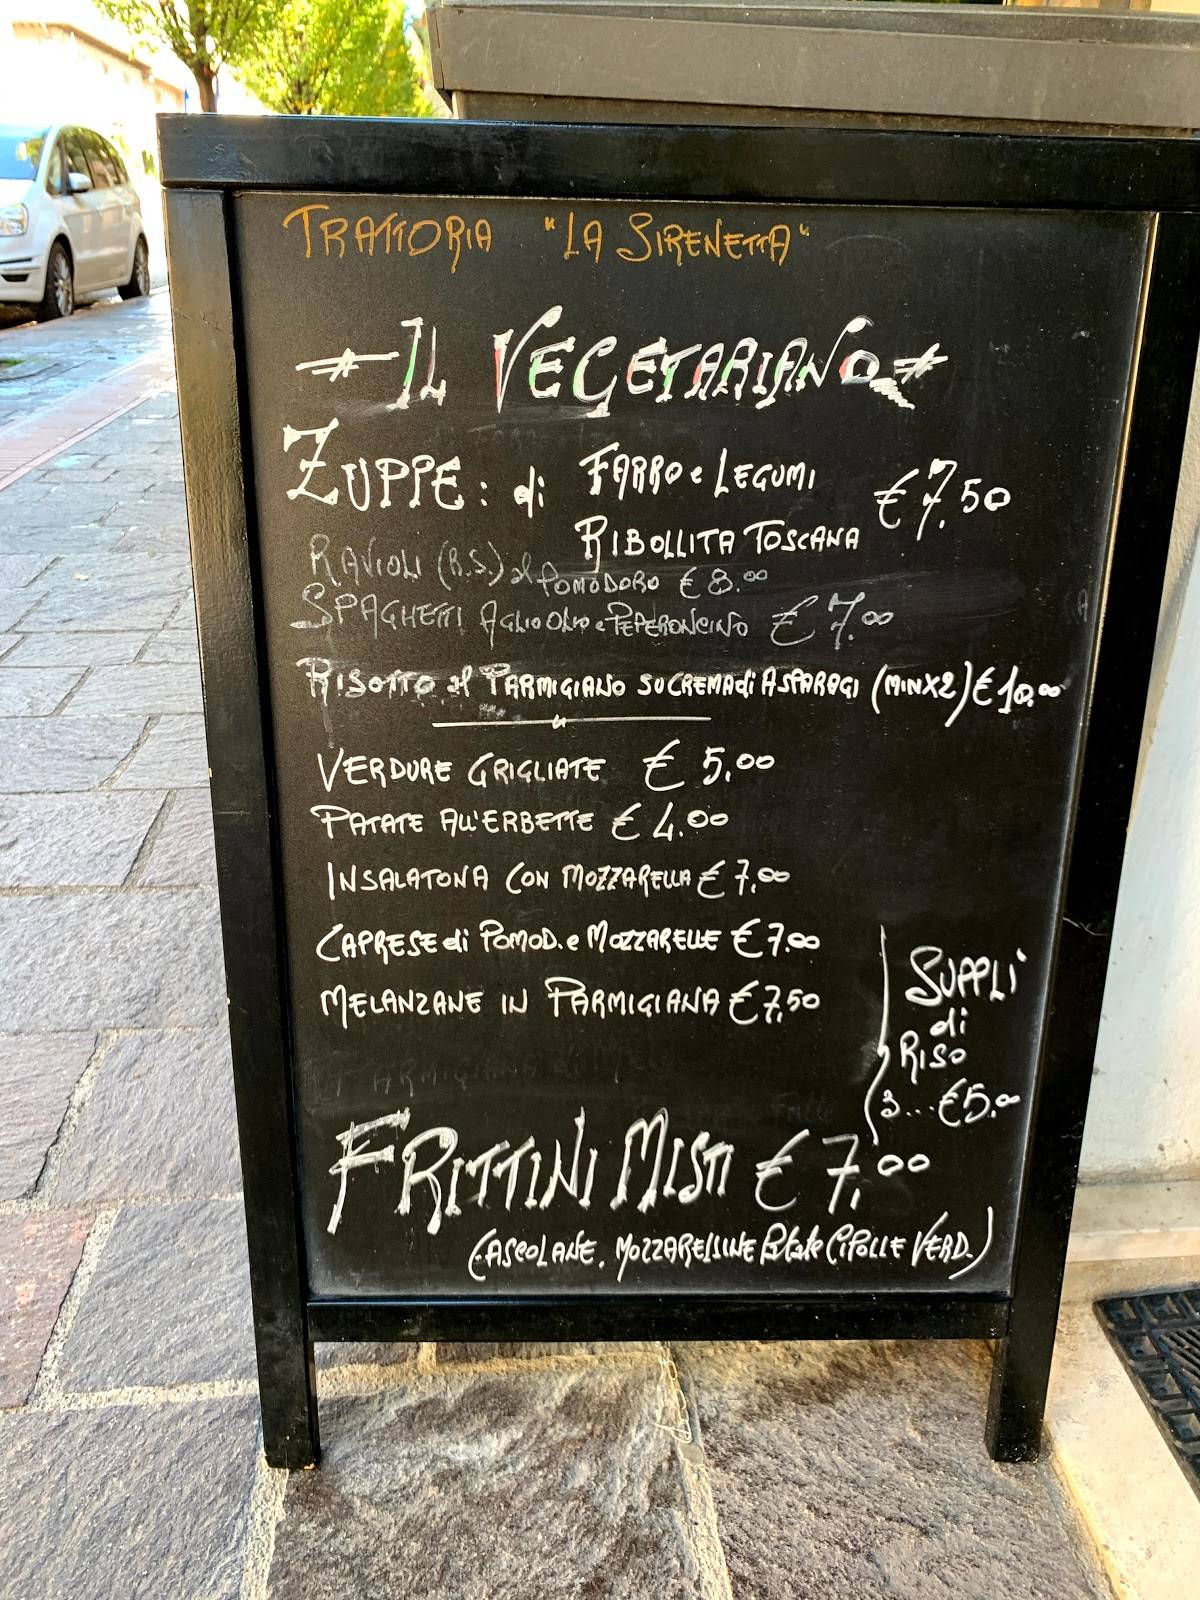 TRATTORIA "LA SIRENETTA"
IL VEGETARIANO
ZUPPE: di FARRO e LEGUMI
RIBOLLITA TOSCANA € 7.50
RAVIOLI (R.S.) al POMODORO € 8.00
SPAGHETTI AGLIO OLIO e PEPERONCINO € 7.00
RISOTTO al PARMIGIANO SU CREMA di ASPARAGI (MIN X2) € 10.00
VERDURE GRIGLIATE € 5.00
PATATE ALL'ERBETTE € 4.00
INSALATONA CON MOZZARELLA € 7,00
CAPRESE di POMOD. e MOZZARELLE € 7.00
MELANZANE IN PARMIGIANA € 7,50
SUPPLI'
di
RISO
3...€5.00
FRITTINI MISTI € 7,00
(ASCOLANE. MOZZARELLINE Patate CIPOLLE VERD.)